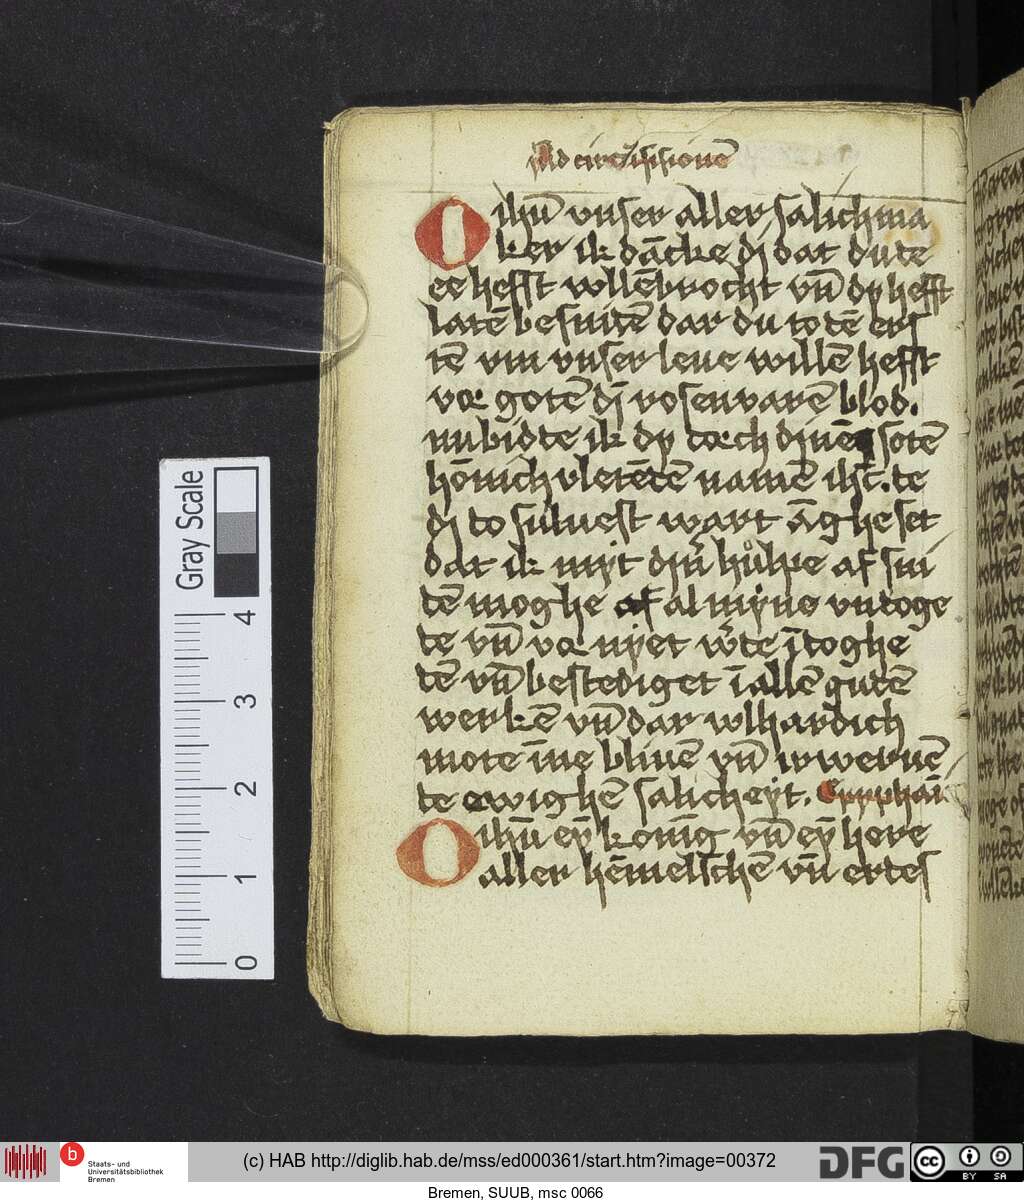 Ad circūsisionē
O ihū vnser aller salichma
ker ik dācke dj dat du te
ee hefft wllēbrocht vn̄ dy hefft
latē besnitē dar du to tē ers
tē vm vnser leue willē hefft
vor gotē dj rosenvarē blod.
nu bidte ik dy torch dinē sotē
hōnich vletētē namē ihc̄. te
dj to suluest wart āgheset
dat ik myt din̄ hůlpe af sni
tē moghe af al myne vntoge
te vn̄ vor nyet w̄te ītoghe
tē vn̄ bestediget ī allē gutē
werkē vn̄ dar wlhardich
mote īne bliuē vn̄ irweruē
te ewighē salicheyt. Eppyhāi
O ihū eȳ konīg vn̄ eȳ here
aller hēmelschē vn̄ ertes
Gray Scale
4
3
2
1
0
b
Staats- und
Universitätsbibliothek
Bremen
(c) HAB http://diglib.hab.de/mss/ed000361/start.htm?image=00372
DFG
cc
BY SA
Bremen, SUUB, msc 0066